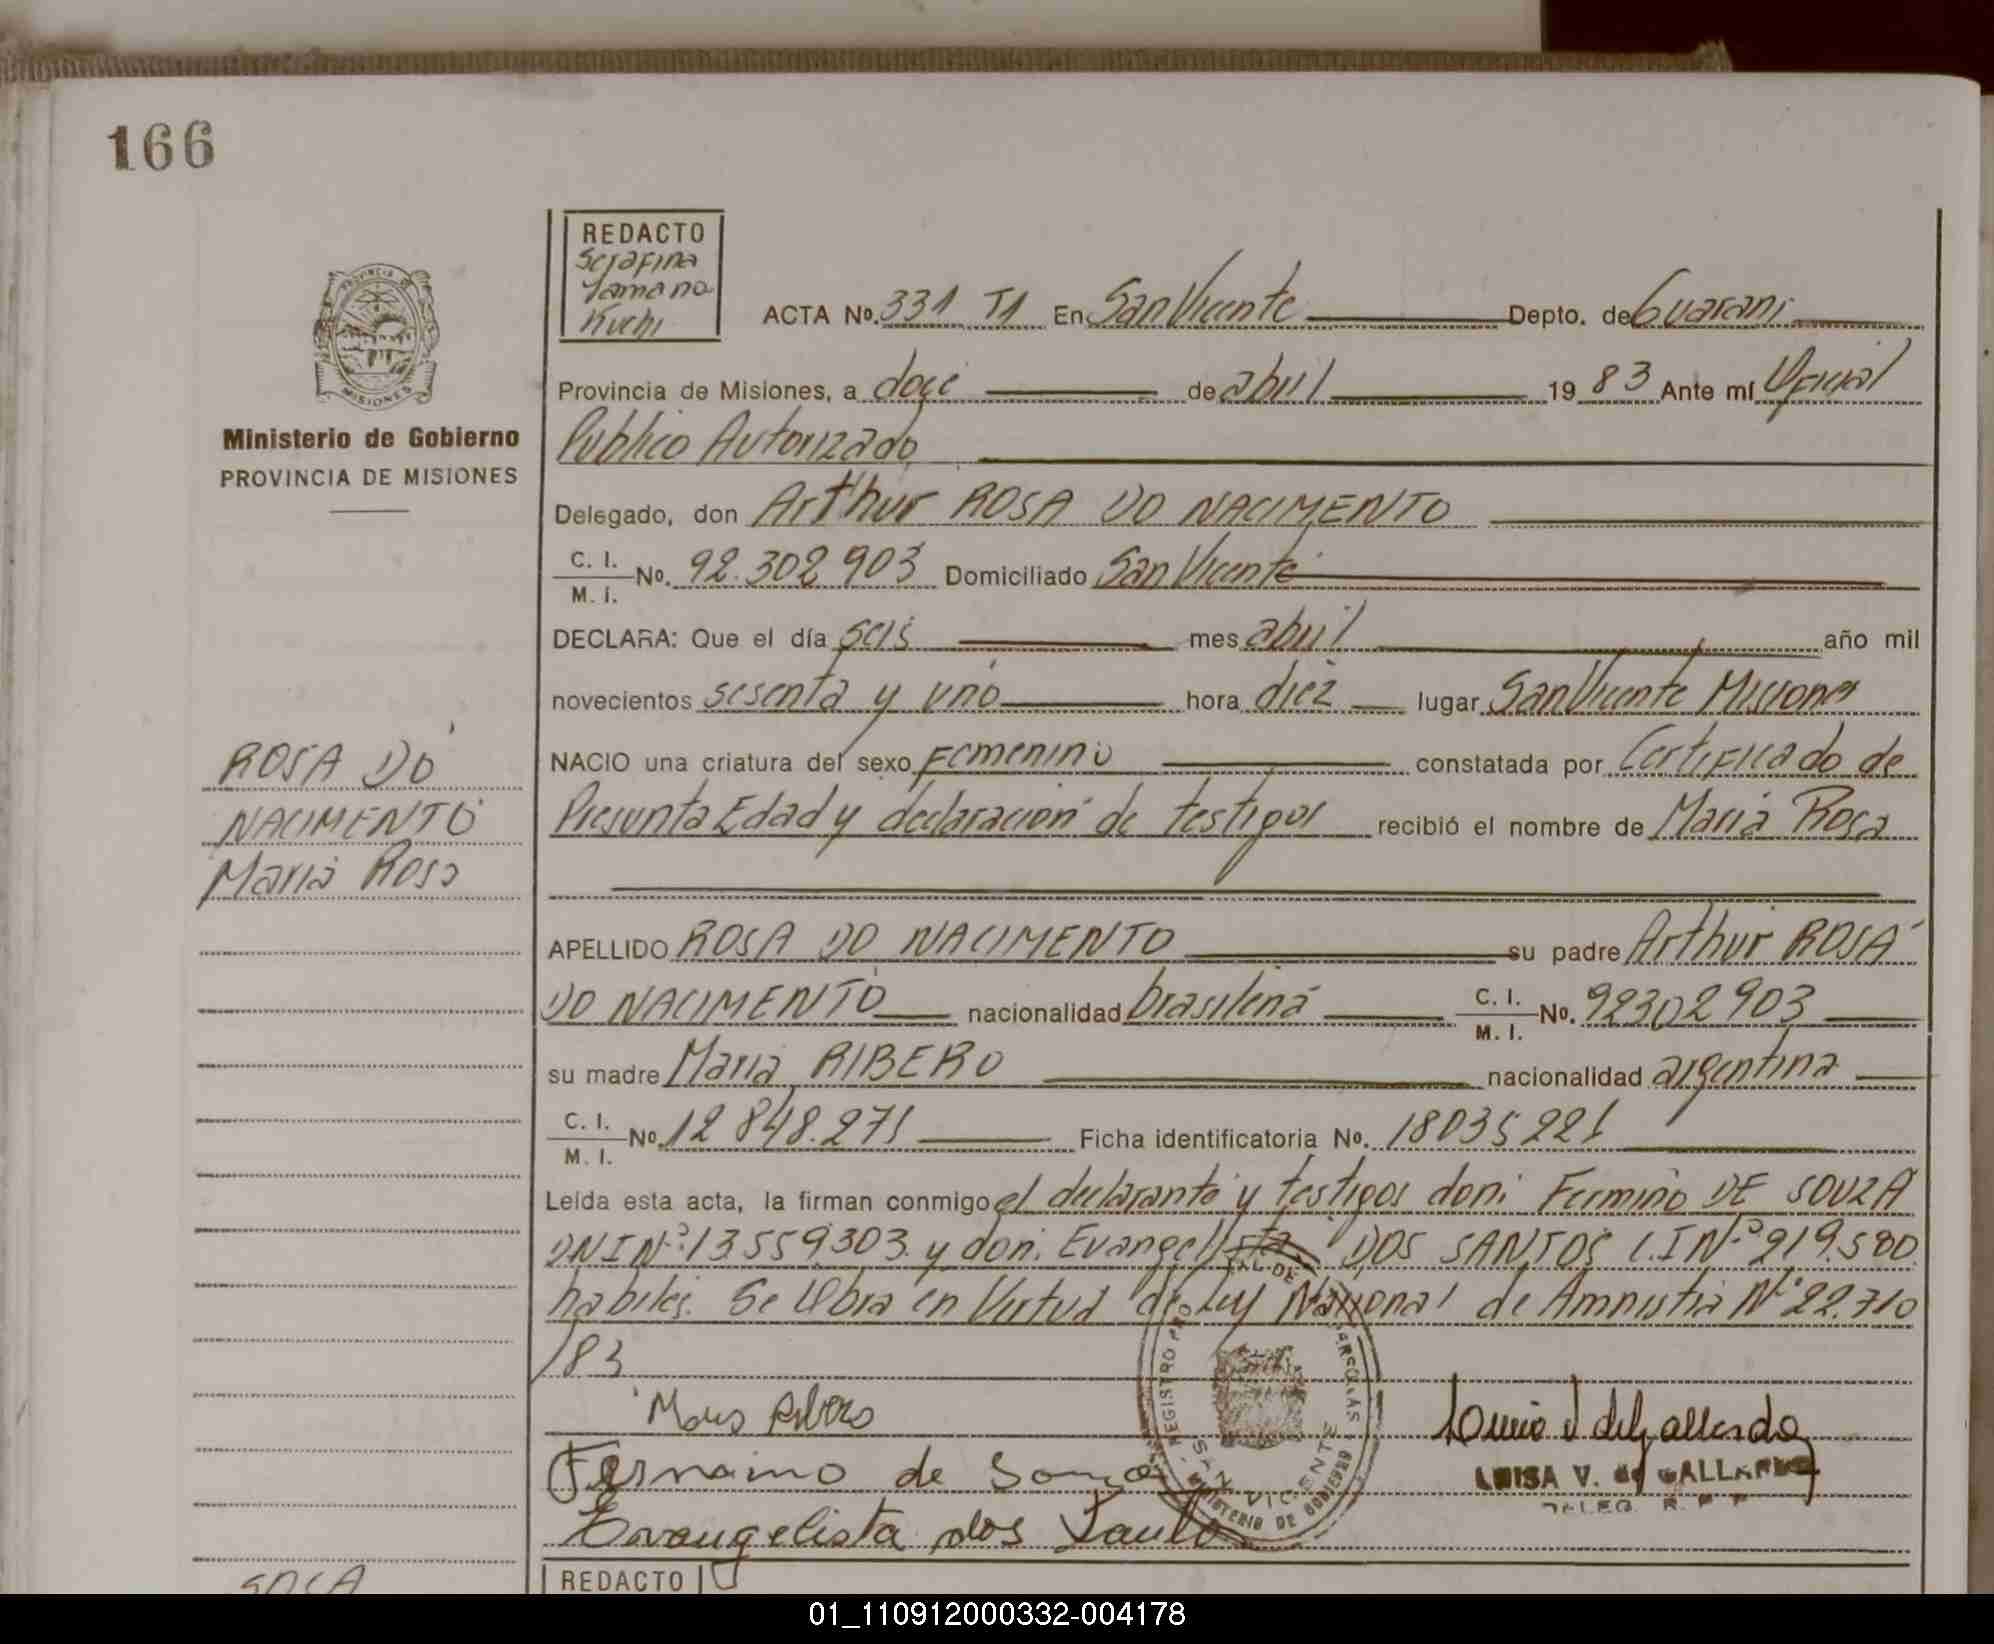 166
REDACTO
Serafina
Yamana
Kuchi
ACTA No. 331 T1 En San Vicente Depto. de Guarani
PROVINCIA DE
MISIONES
Provincia de Misiones, a doce de abril 19 83 Ante mí Oficial
Ministerio de Gobierno
PROVINCIA DE MISIONES
Publico Autorizado
Delegado, don Arthur ROSA DO NACIMENTO
C. I.
M. I. No. 92.302.903 Domiciliado San Vicente
DECLARA: Que el día seis mes abril año mil
novecientos sesenta y uno hora diez lugar San Vicente Misiones
NACIO una criatura del sexo Femenino constatada por Certificado de
Presunta Edad y declaración de testigos recibió el nombre de Maria Rosa
ROSA DO
NACIMENTO
Maria Rosa
APELLIDO ROSA DO NACIMENTO su padre Arthur ROSA
DO NACIMENTO nacionalidad brasilena C. I.
M. I. No. 92302903
su madre Maria RIBERO nacionalidad argentina
C. I.
M. I. No. 12.848.271 Ficha identificatoria No. 18035221
Leída esta acta, la firman conmigo el declarante y testigos don: Fermino DE SOUZA
DNI Nº: 13559.303 y don: Evangelista DOS SANTOS C.I Nº 919.580
habiles. Se Labra en Virtud de Ley Nacional de Amnistia Nº 22.710
/83
REGISTRO
SAN VICENTE
MINISTERIO DE GOBIERNO
LUISA V. de GALLARDO
DELEG. R. P. P.
Evangelista dos
REDACTO
SOSA
01_110912000332-004178